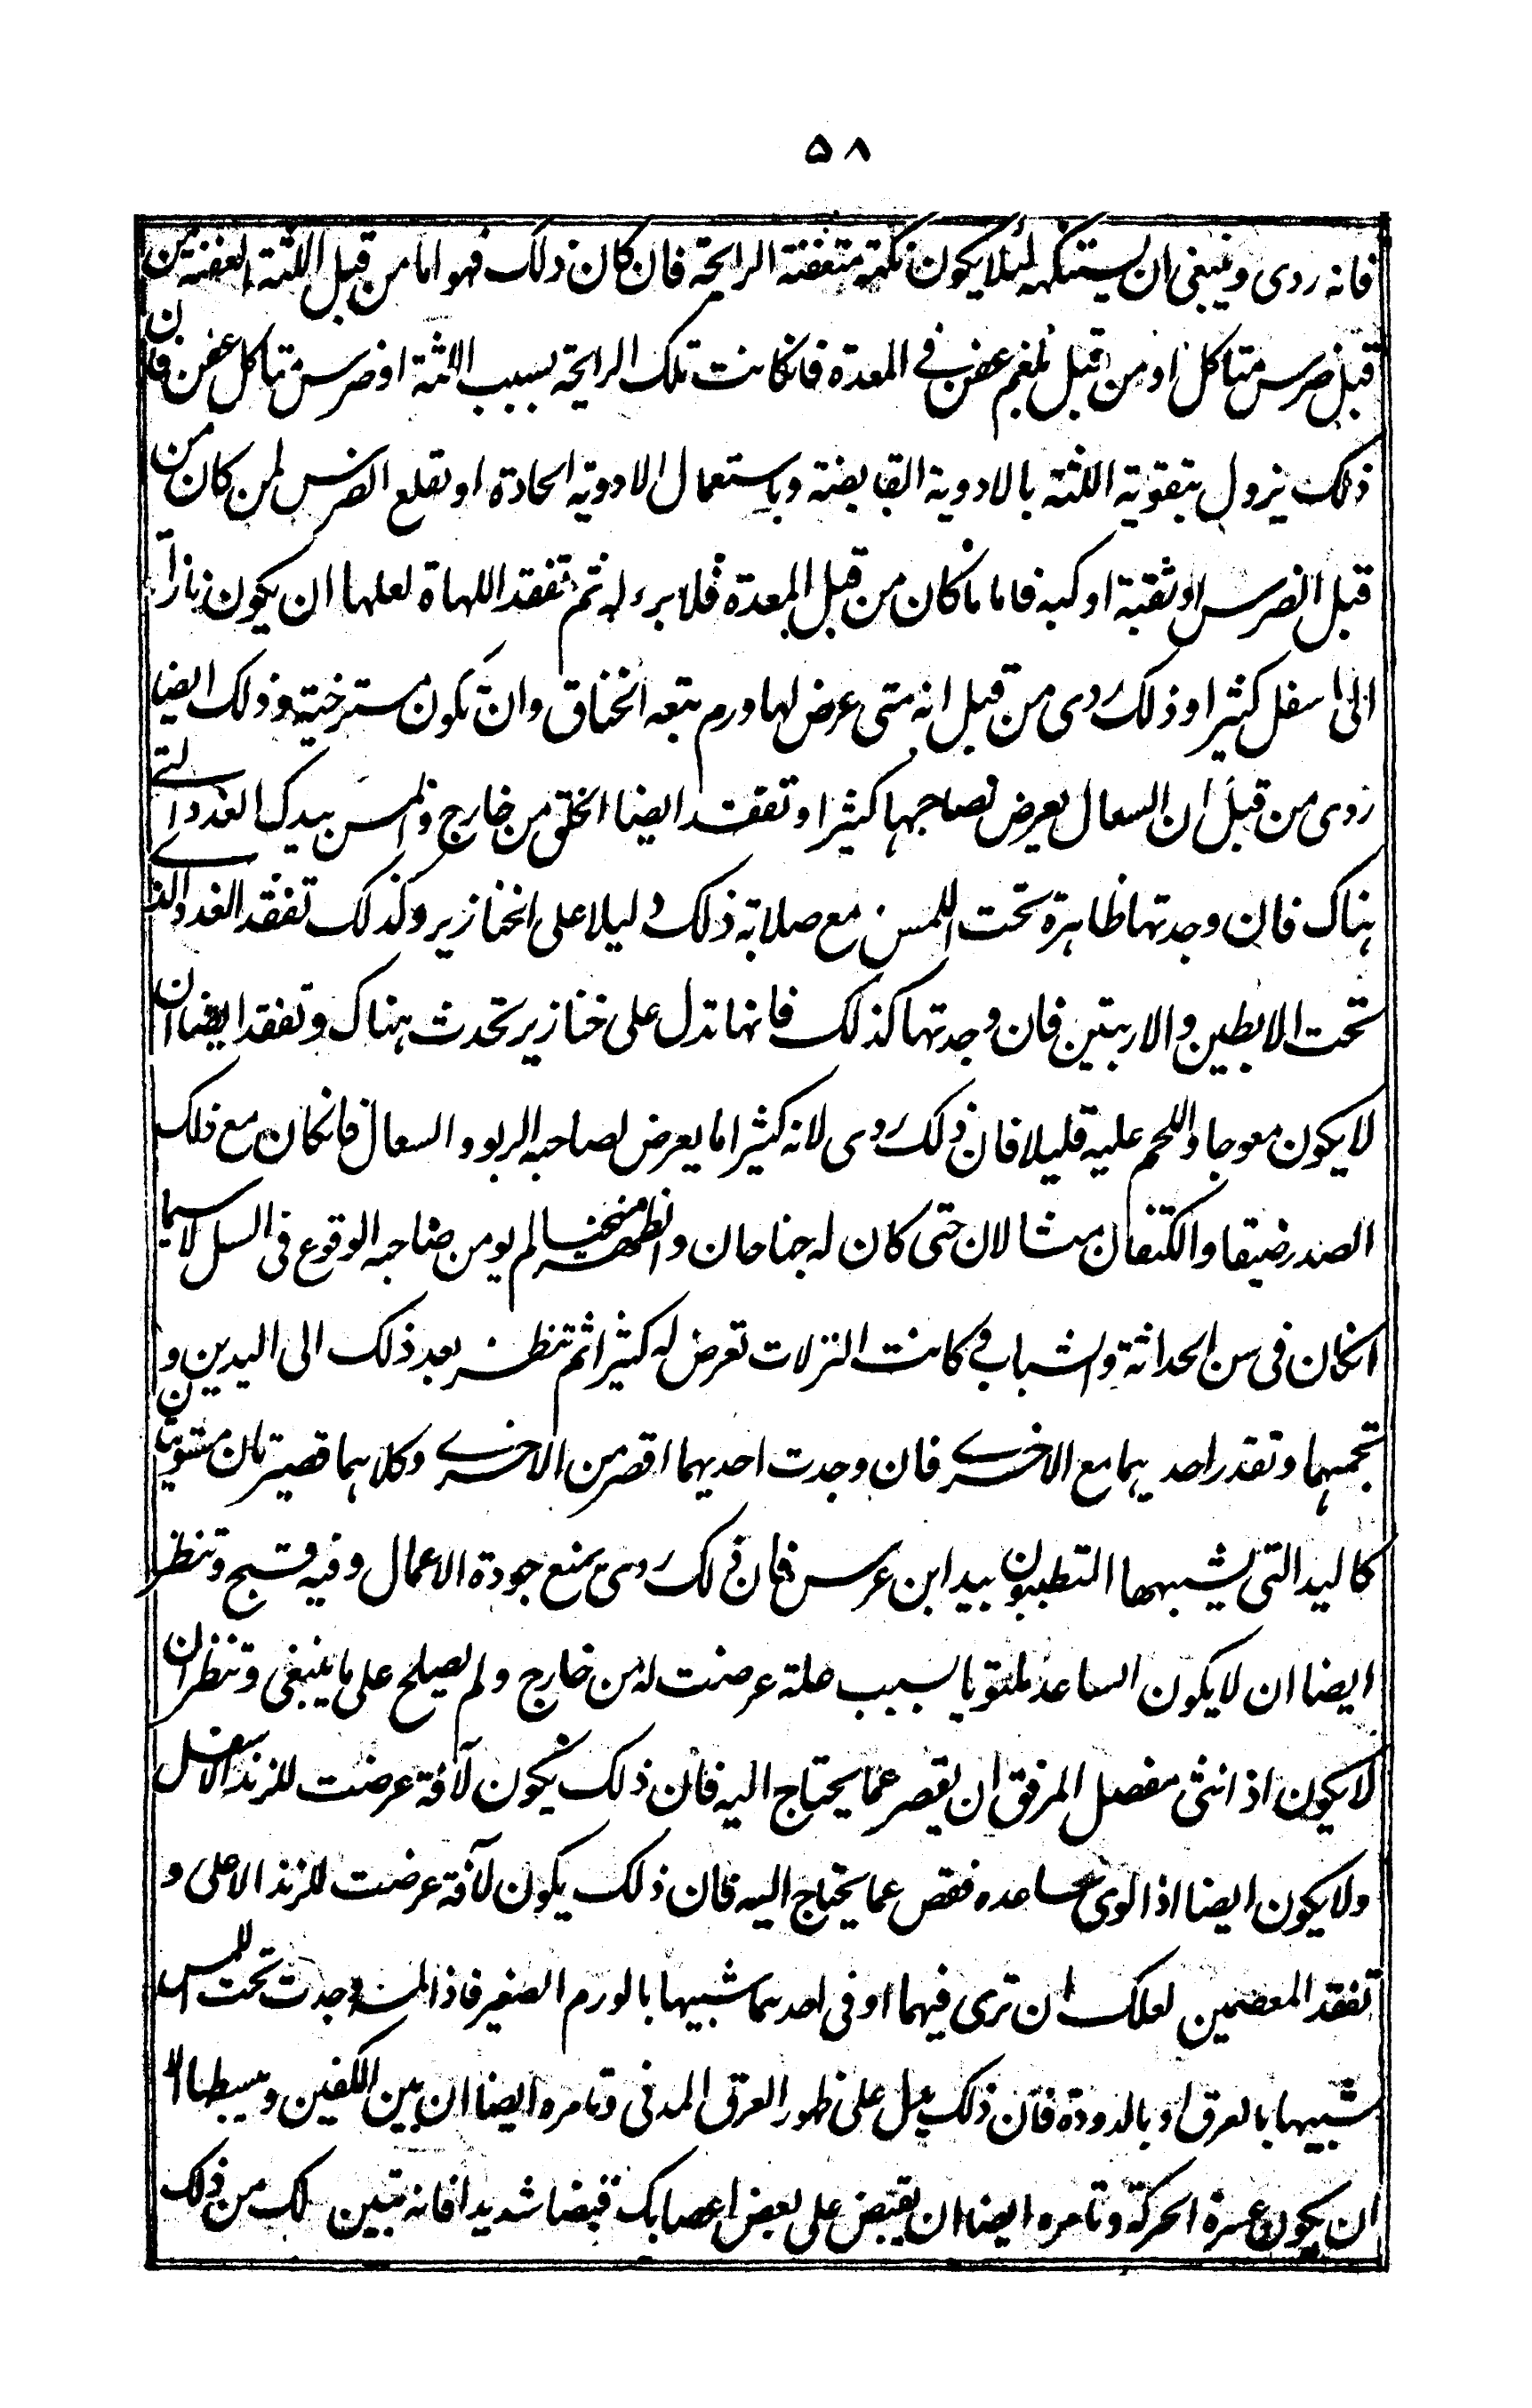 ۵۸
فانه ردى وينبغى ان يستنكهه لئلا يكون نكهته متعفنة الرايحة فان كان ذلك فهو اما من قبل اللثة العفنة من
قبل ضرس متاكل او من قبل بلغم عفن فى المعدة فانكانت تلك الرايحة بسبب اللثة او ضرس متاكل عفن فان
ذلك يزول بتقوية اللثة بالادوية القابضة وباستعمال الادوية الحادة او بقلع الضرس لمن كان من
قبل الضرس او ثقبة او كيه فاما ما كان من قبل المعدة فلا برء له ثم تفقد اللهاة لعلها ان يكون نازلة
الى اسفل كثيرا وذلك ردى من قبل انه متى عرض لها ورم تبعه الخناق وان تكون مسترخية وذلك ايضا
ردى من قبل ان السعال يعرض لصاحبها كثيرا وتفقد ايضا الحلق من خارج والمس بيدك الغدد التى
هناك فان وجدتها ظاهرة تحت اللمس مع صلابة ذلك دليلا على الخنازير وكذلك تفقد الغدد التى
تحت الابطين والاربتين فان وجدتها كذلك فانها تدل على خنازير تحدث هناك وتفقد ايضا ان
لا يكون معوجا واللحم عليه قليلا فان ذلك ردى لانه كثيرا ما يعرض لصاحبه الربو والسعال فانكان مع ذلك
الصدر ضيقا والكتفان مثالان حتى كان له جناحان والظهر منحنيا لم يومن صاحبه الوقوع فى السل لا سيما
انكان فى سن الحداثة والشباب و كانت النزلات تعرض له كثيرا ثم تنظر بعد ذلك الى اليدين و
تجمعهما وتقدر احديهما مع الاخرى فان وجدت احديهما اقصر من الاخرى وكلاهما قصيرتان
كاليد التى يشبهها المتطببون بيد ابن عرس فان ذلك ردى يمنع جودة الاعمال وفيه قبح وتنظر
ايضا ان لا يكون الساعد ملتويا بسبب علة عرضت له من خارج ولم يصلح على ما ينبغى وتنظر ان
لا يكون اذ انثنى مفصل المرفق ان يقصر عما يحتاج اليه فان ذلك يكون لآفة عرضت للزند الاسفل
ولا يكون ايضا اذا لوى ساعده فقص عما يحتاج اليه فان ذلك يكون لآفة عرضت للزند الاعلى و
تفقد المعصمين لعلك ان ترى فيهما او فى احدهما شبيها بالورم الصغير فاذا لمسته وجدت تحت اللمس
شبيها بالعرق او بالدودة فان ذلك يدل على ظهور العرق المدنى وتامره ايضا ان بين الكفين ويبسطها لا
ان يكون عسرة الحركة وتامره ايضا ان يقبض على بعض اعصابك قبضا شديدا فانه تبين لك من ذلك